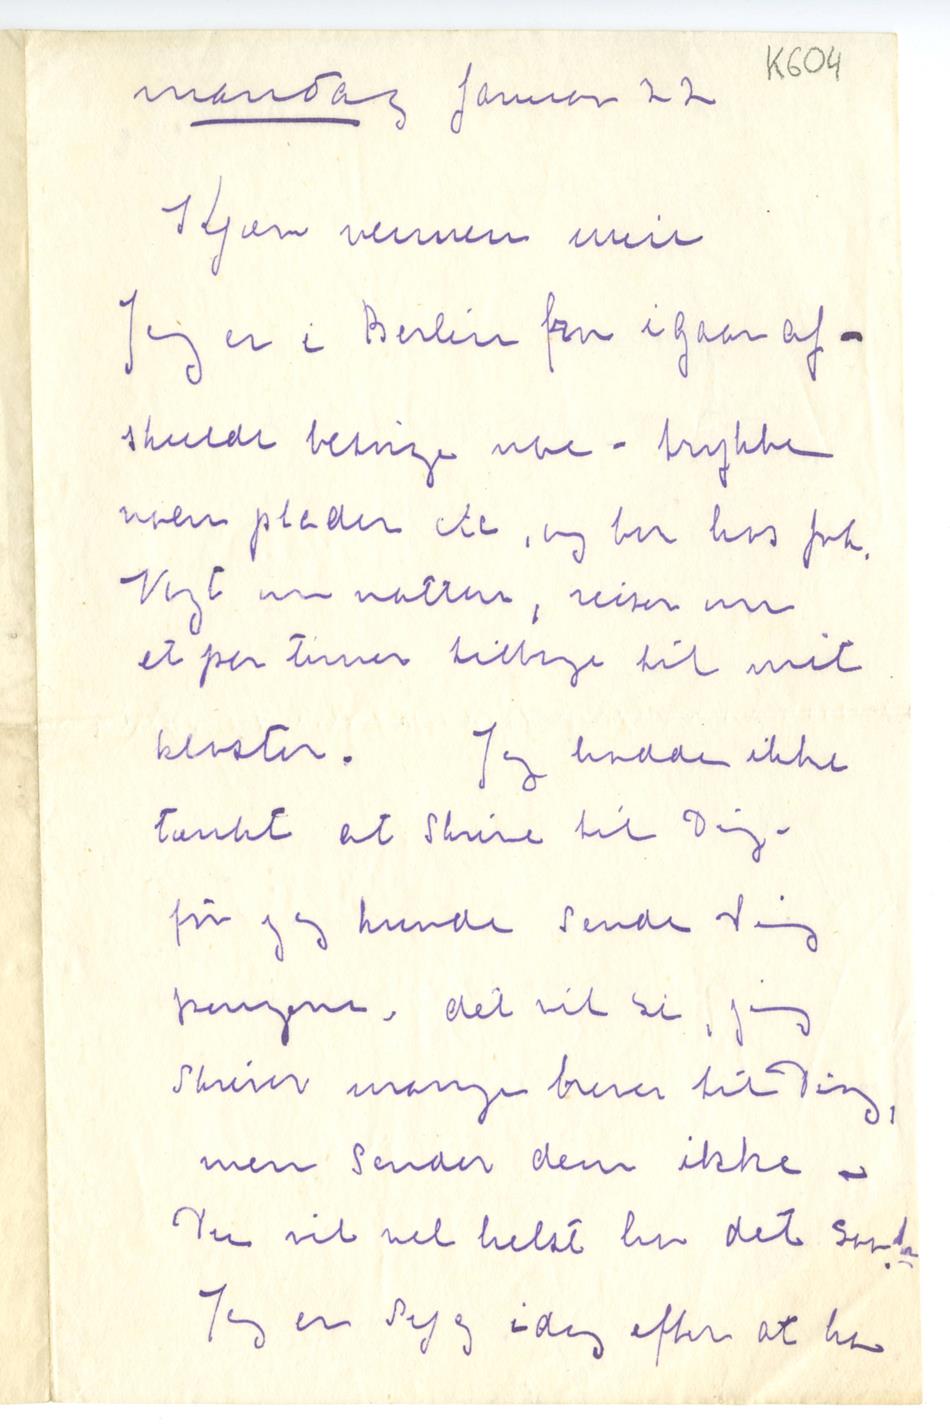 K604
mandag Januar 22
Kjære vennen min
Jeg er i Berlin fra igaar af –
skulde besørge noe – trykke
noen plader etc, og bor hos frk.
Vogt om natten, reiser om
et par timer tilbage til mit
kloster. Jeg hadde ikke
tænkt at skrive til Dig –
før jeg kunde sende Dig
pengene. det vil si, jeg
skriver mange brever til Dig,
men sender dem ikke –
Du vil vel helst ha det saa.
Jeg er syg idag efter at ha